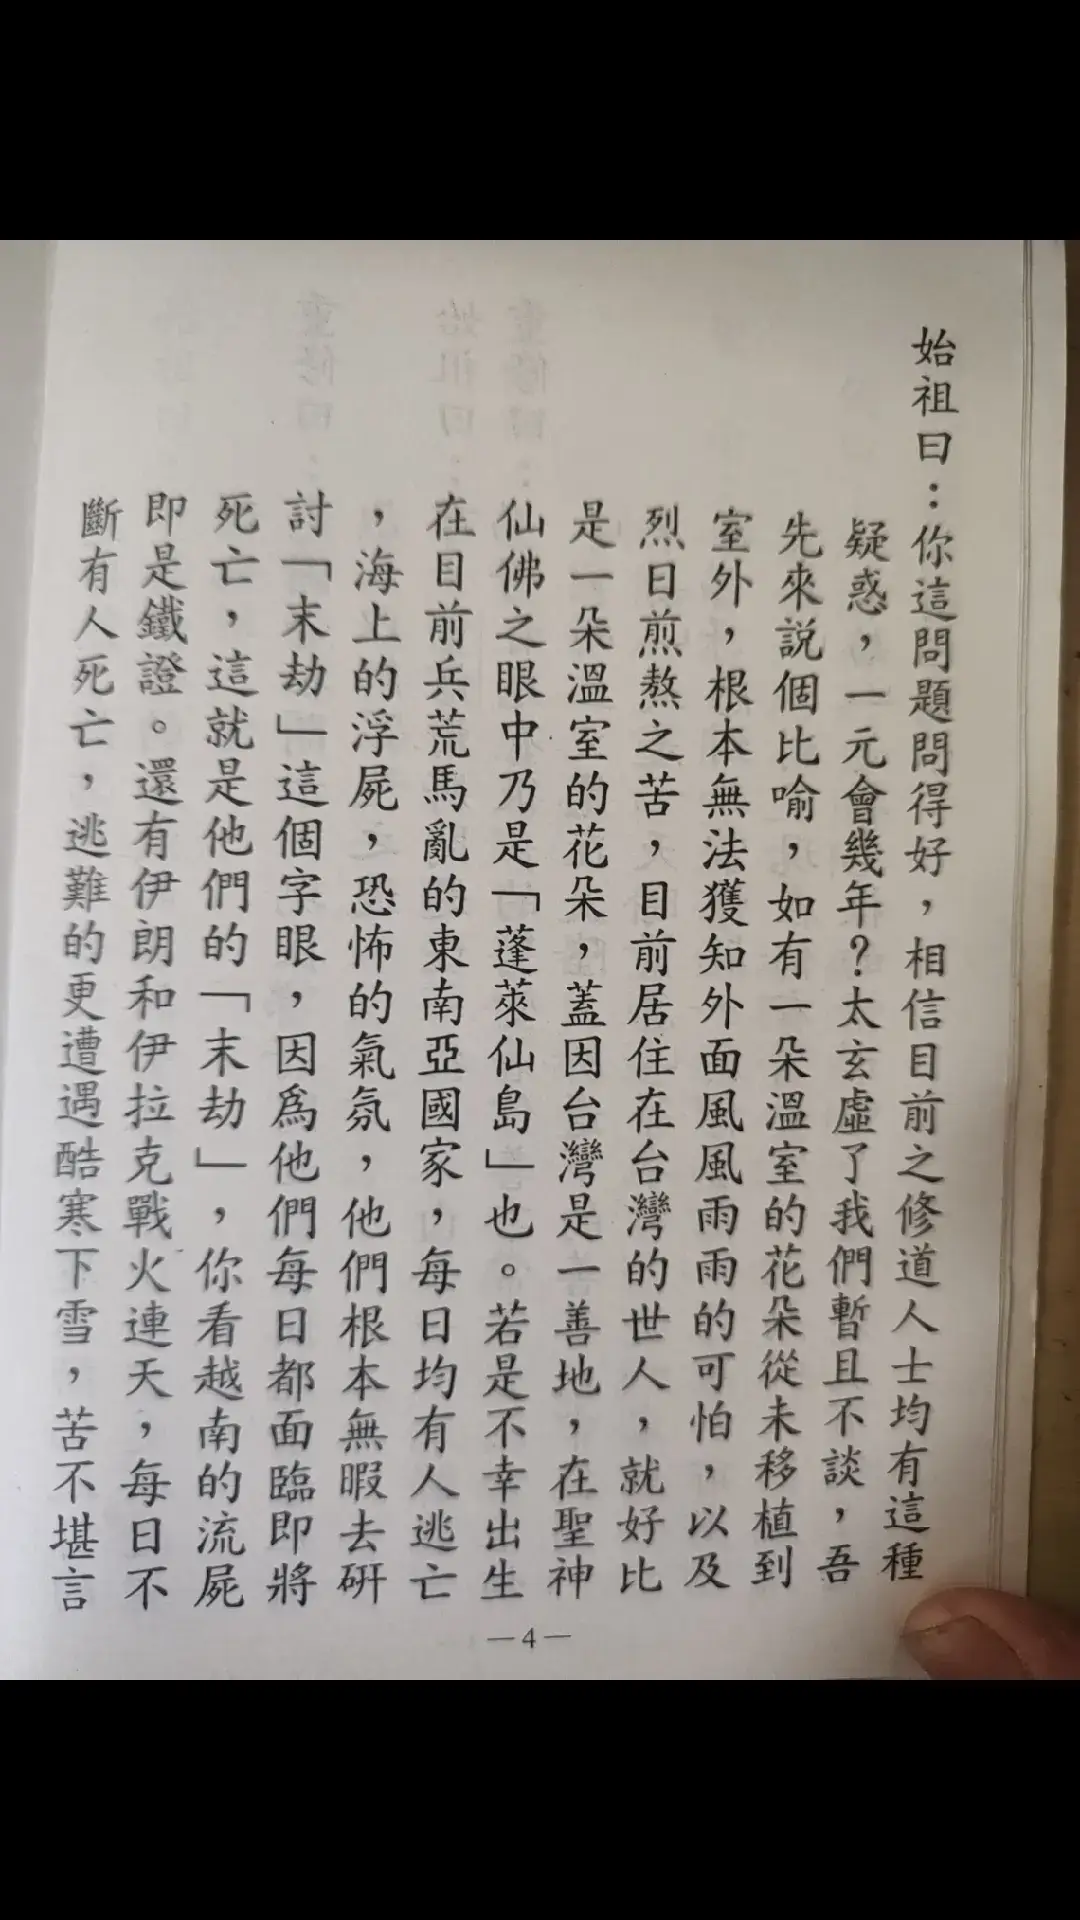 始祖曰：你這問題問得好，相信目前之修道人士均有這種
疑惑，一元會幾年？太玄虛了我們暫且不談，吾
先來說個比喻，如有一朵溫室的花朵從未移植到
室外，根本無法獲知外面風風雨雨的可怕，以及
烈日煎熬之苦，目前居住在台灣的世人，就好比
是一朵溫室的花朵，蓋因台灣是一善地，在聖神
仙佛之眼中乃是「蓬萊仙島」也。若是不幸出生
在目前兵荒馬亂的東南亞國家，每日均有人逃亡
，海上的浮屍，恐怖的氣氛，他們根本無暇去研
討「末劫」這個字眼，因為他們每日都面臨即將
死亡，這就是他們的「末劫」，你看越南的流屍
即是鐵證。還有伊朗和伊拉克戰火連天，每日不
斷有人死亡，逃難的更遭遇酷寒下雪，苦不堪言
—4—